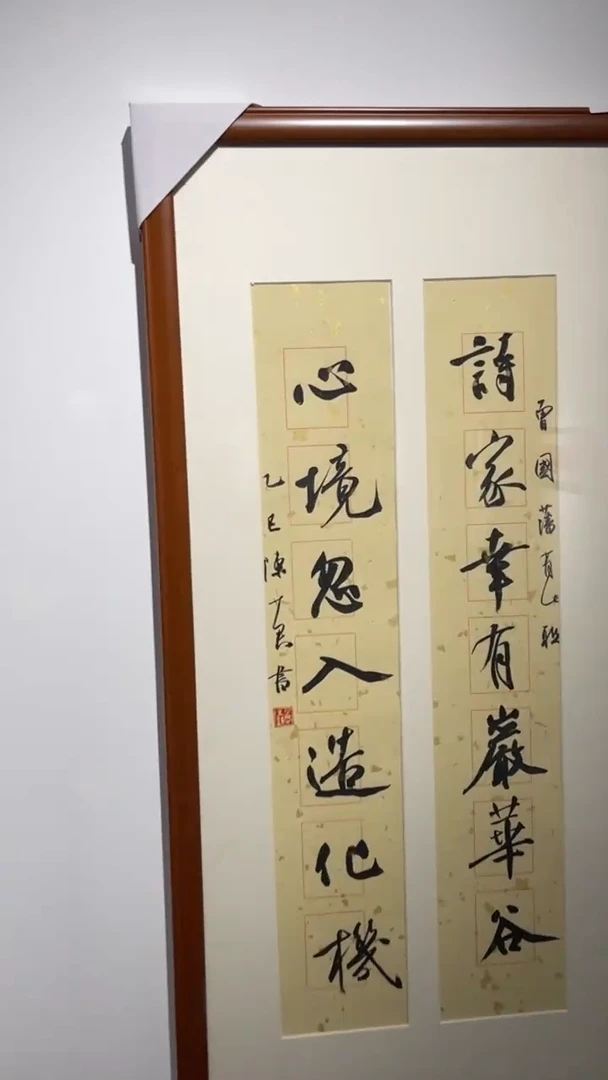 詩家幸有嚴華谷
曾國藩有此聯
心境忽入造化機
乙巳陳少君書